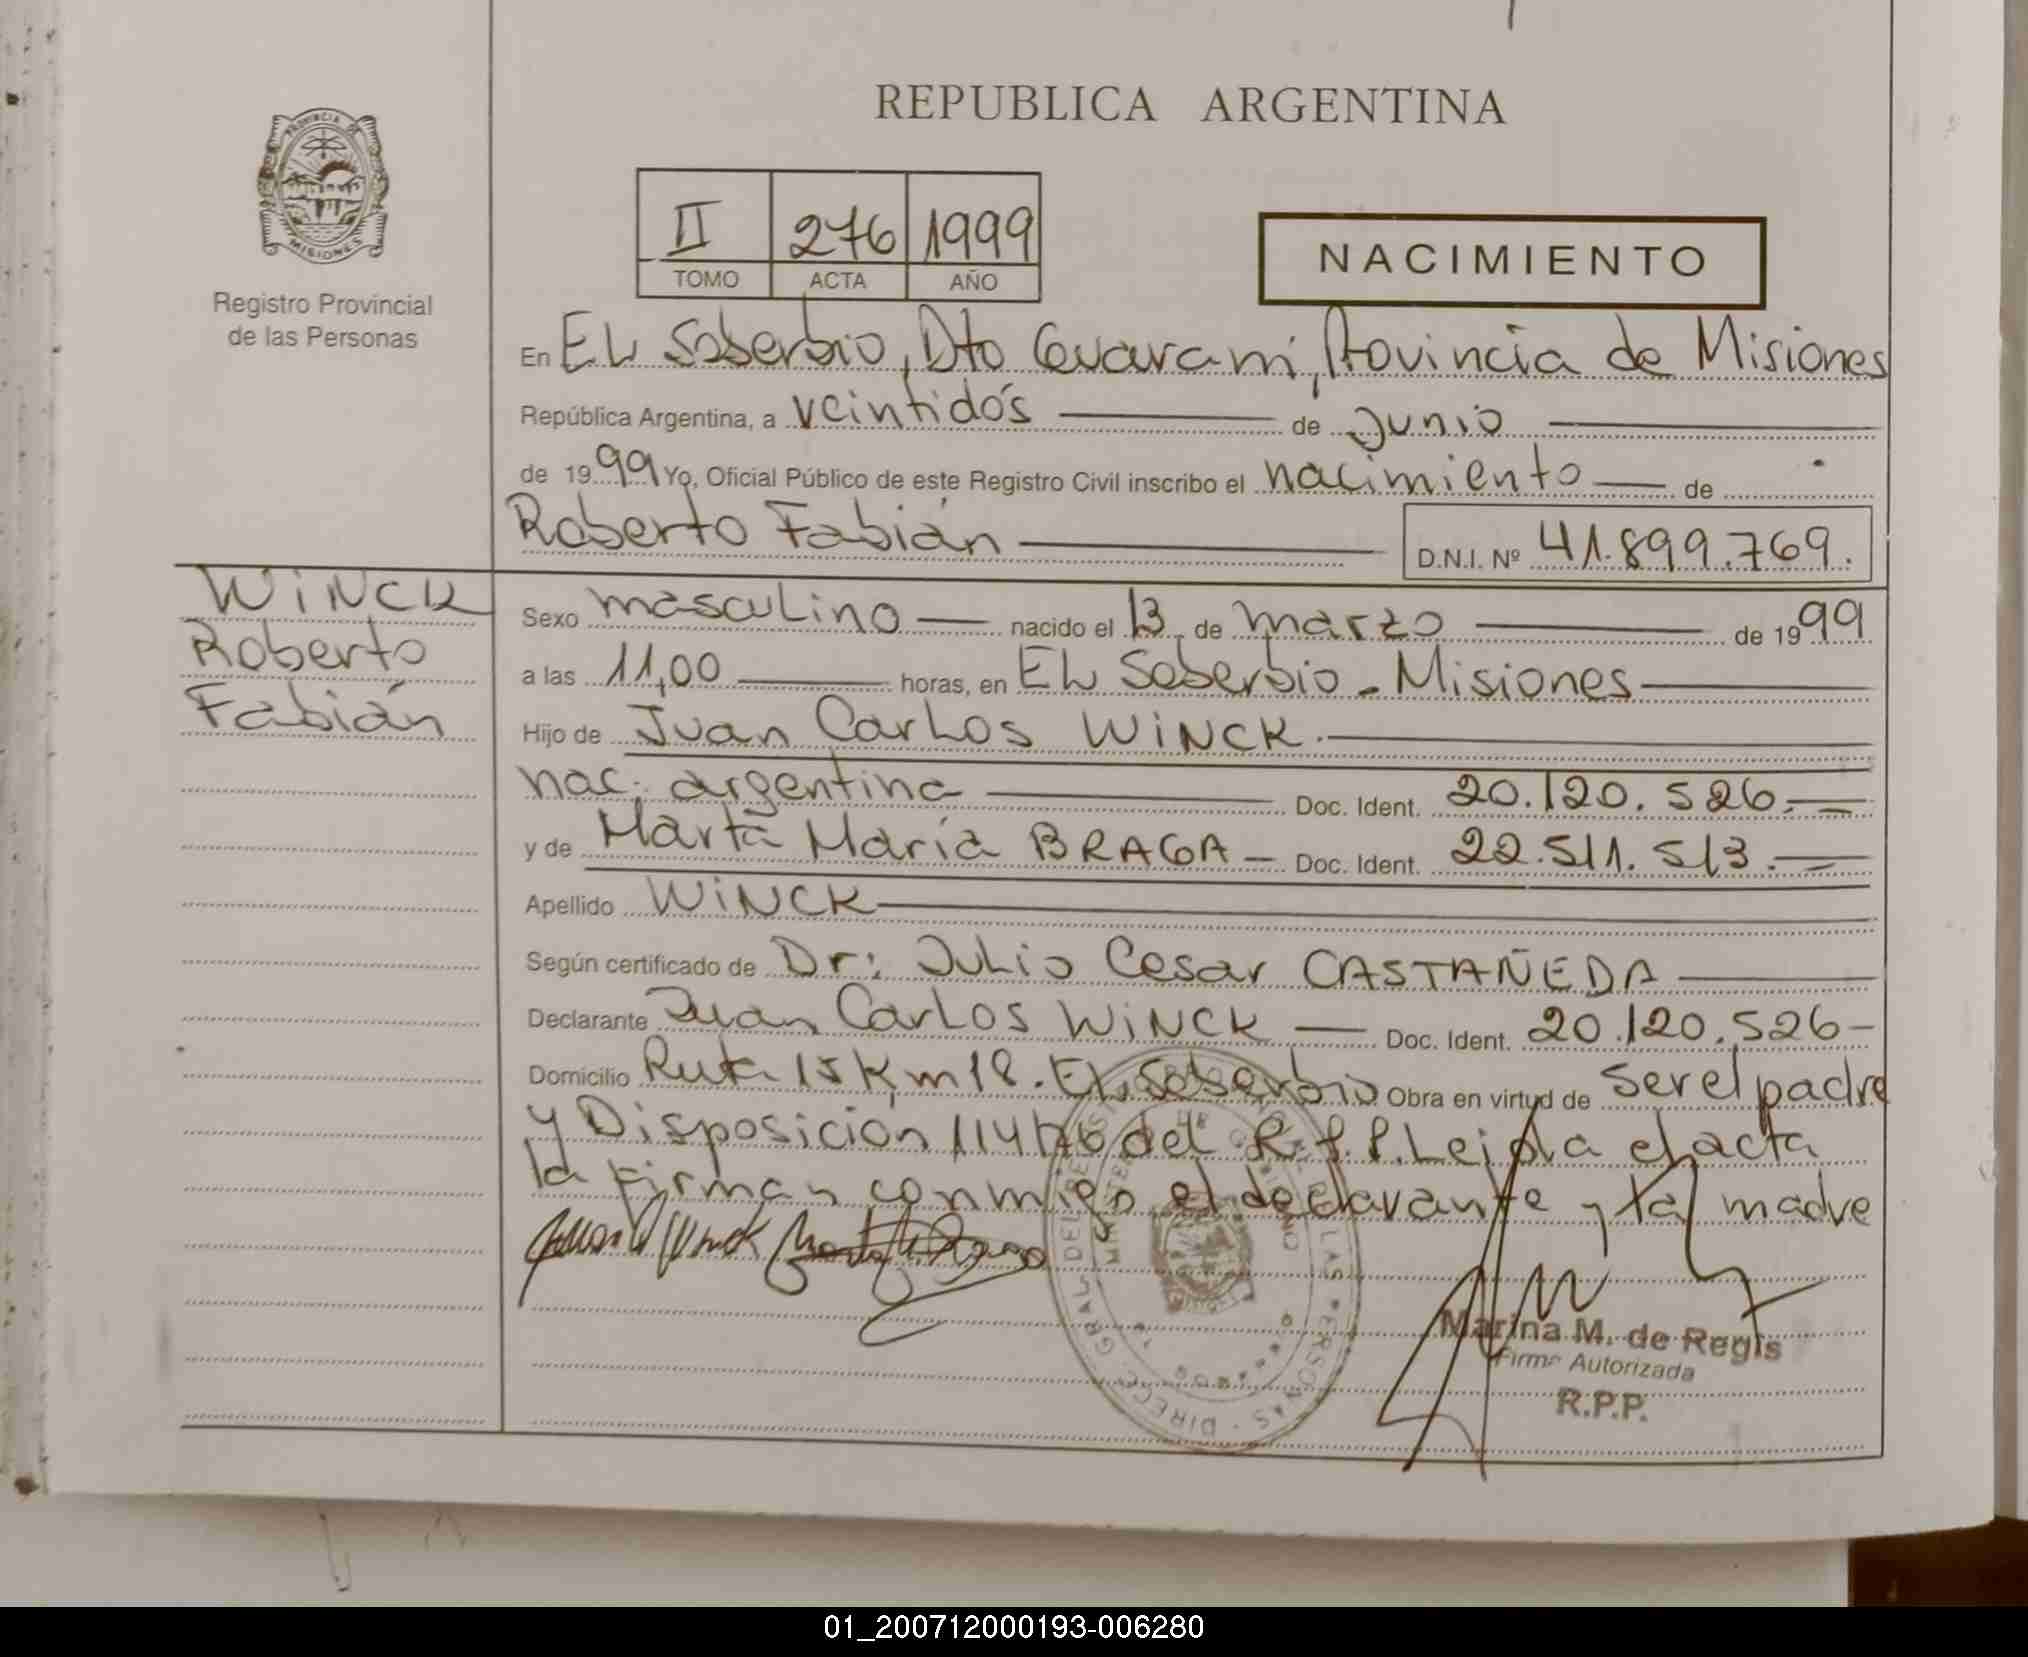 REPUBLICA ARGENTINA
PROVINCIA DE
MISIONES
Registro Provincial
de las Personas
II 276 1999
TOMO ACTA AÑO
NACIMIENTO
En EL Soberbio, Dto Guaraní, Provincia de Misiones
República Argentina, a veintidós de Junio
de 1999 Yo, Oficial Público de este Registro Civil inscribo el nacimiento de
Roberto Fabián D.N.I. Nº 41.899.769.
WiNCK
Roberto
Fabián
Sexo masculino nacido el 13 de marzo de 1999
a las 11,00 horas, en EL Soberbio - Misiones
Hijo de Juan Carlos WiNCK.
nac. argentina Doc. Ident. 20.120.526.
y de Marta María BRAGA Doc. Ident. 22.511.513.
Apellido WiNCK
Según certificado de Dr: Julio Cesar CASTAÑEDA
Declarante Juan Carlos WiNCK Doc. Ident. 20.120.526
Domicilio Ruta 15 Km 18. EL Soberbio Obra en virtud de ser el padre
y Disposición 114/76 del R.P.P. Leída el acta
la firman conmigo el declarante y la madre
Juan C Winck
Marina M. de Regis
Firma Autorizada
R.P.P.
01_200712000193-006280